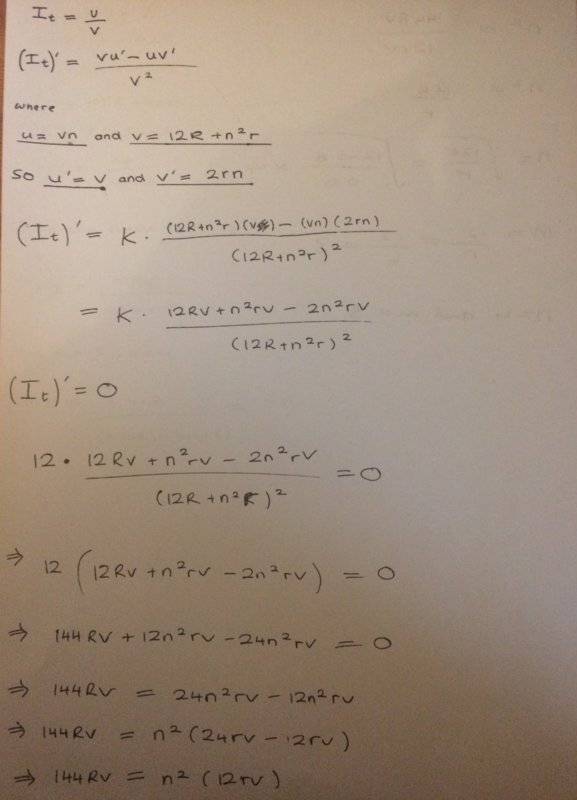 I_t = u/v
(I_t)' = (vu' - uv')/v²
where
u = Vn and v = 12R + n²r
So u' = V and v' = 2rn
(I_t)' = K · ((12R+n²r)(V) - (Vn)(2rn))/(12R+n²r)²
= K · (12RV + n²rV - 2n²rV)/(12R+n²r)²
(I_t)' = 0
12 · (12RV + n²rV - 2n²rV)/(12R+n²r)² = 0
⇒ 12 (12RV + n²rV - 2n²rV) = 0
⇒ 144RV + 12n²rV - 24n²rV = 0
⇒ 144RV = 24n²rV - 12n²rV
⇒ 144RV = n²(24rV - 12rV)
⇒ 144RV = n² (12rV)